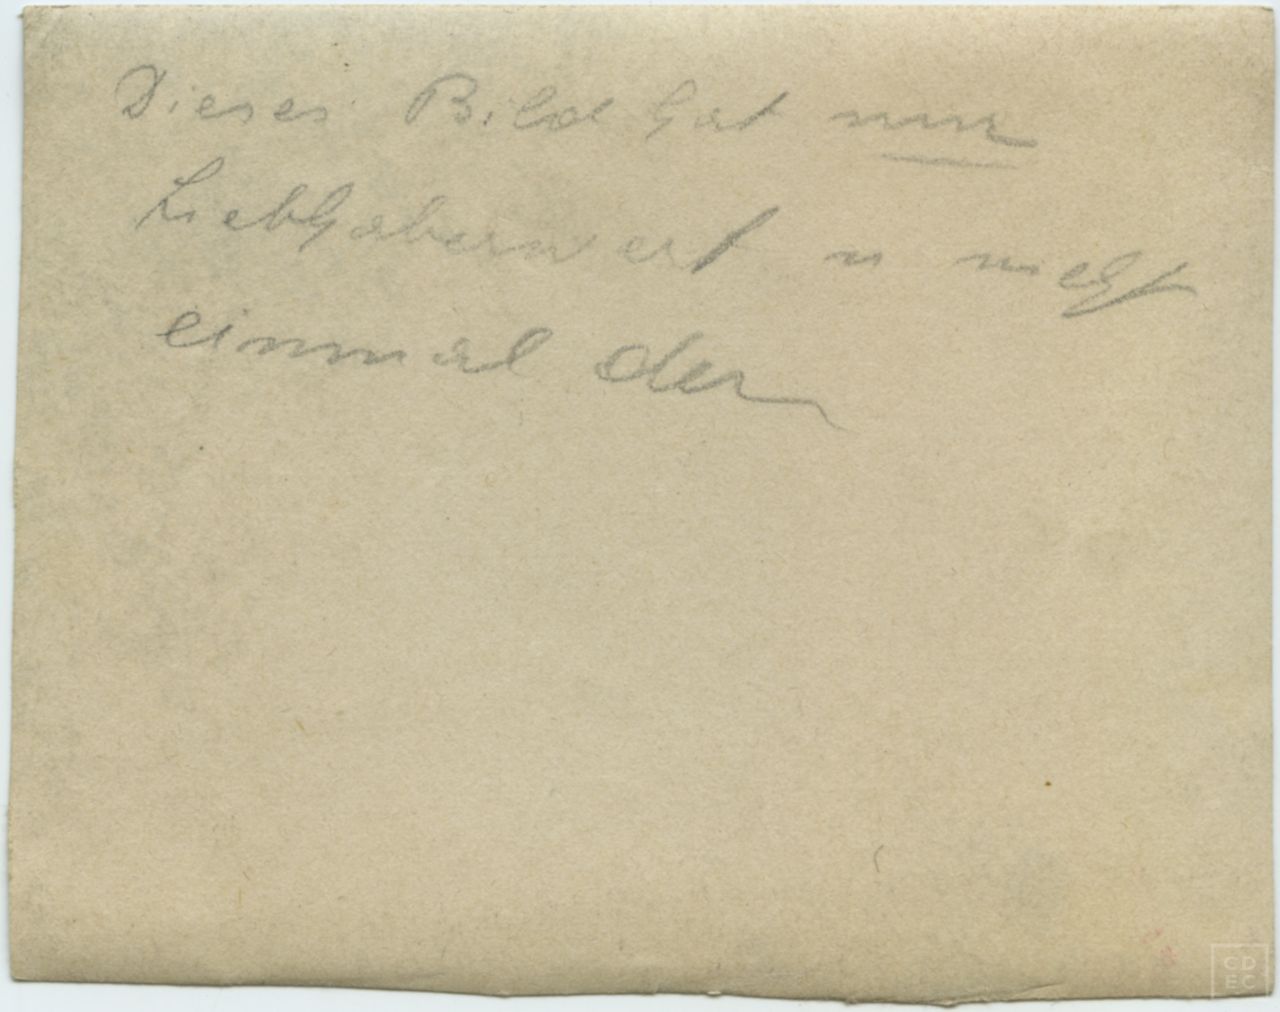 Dieses Bild hat nur
Liebhaberwert u nicht
einmal der
CD
EC